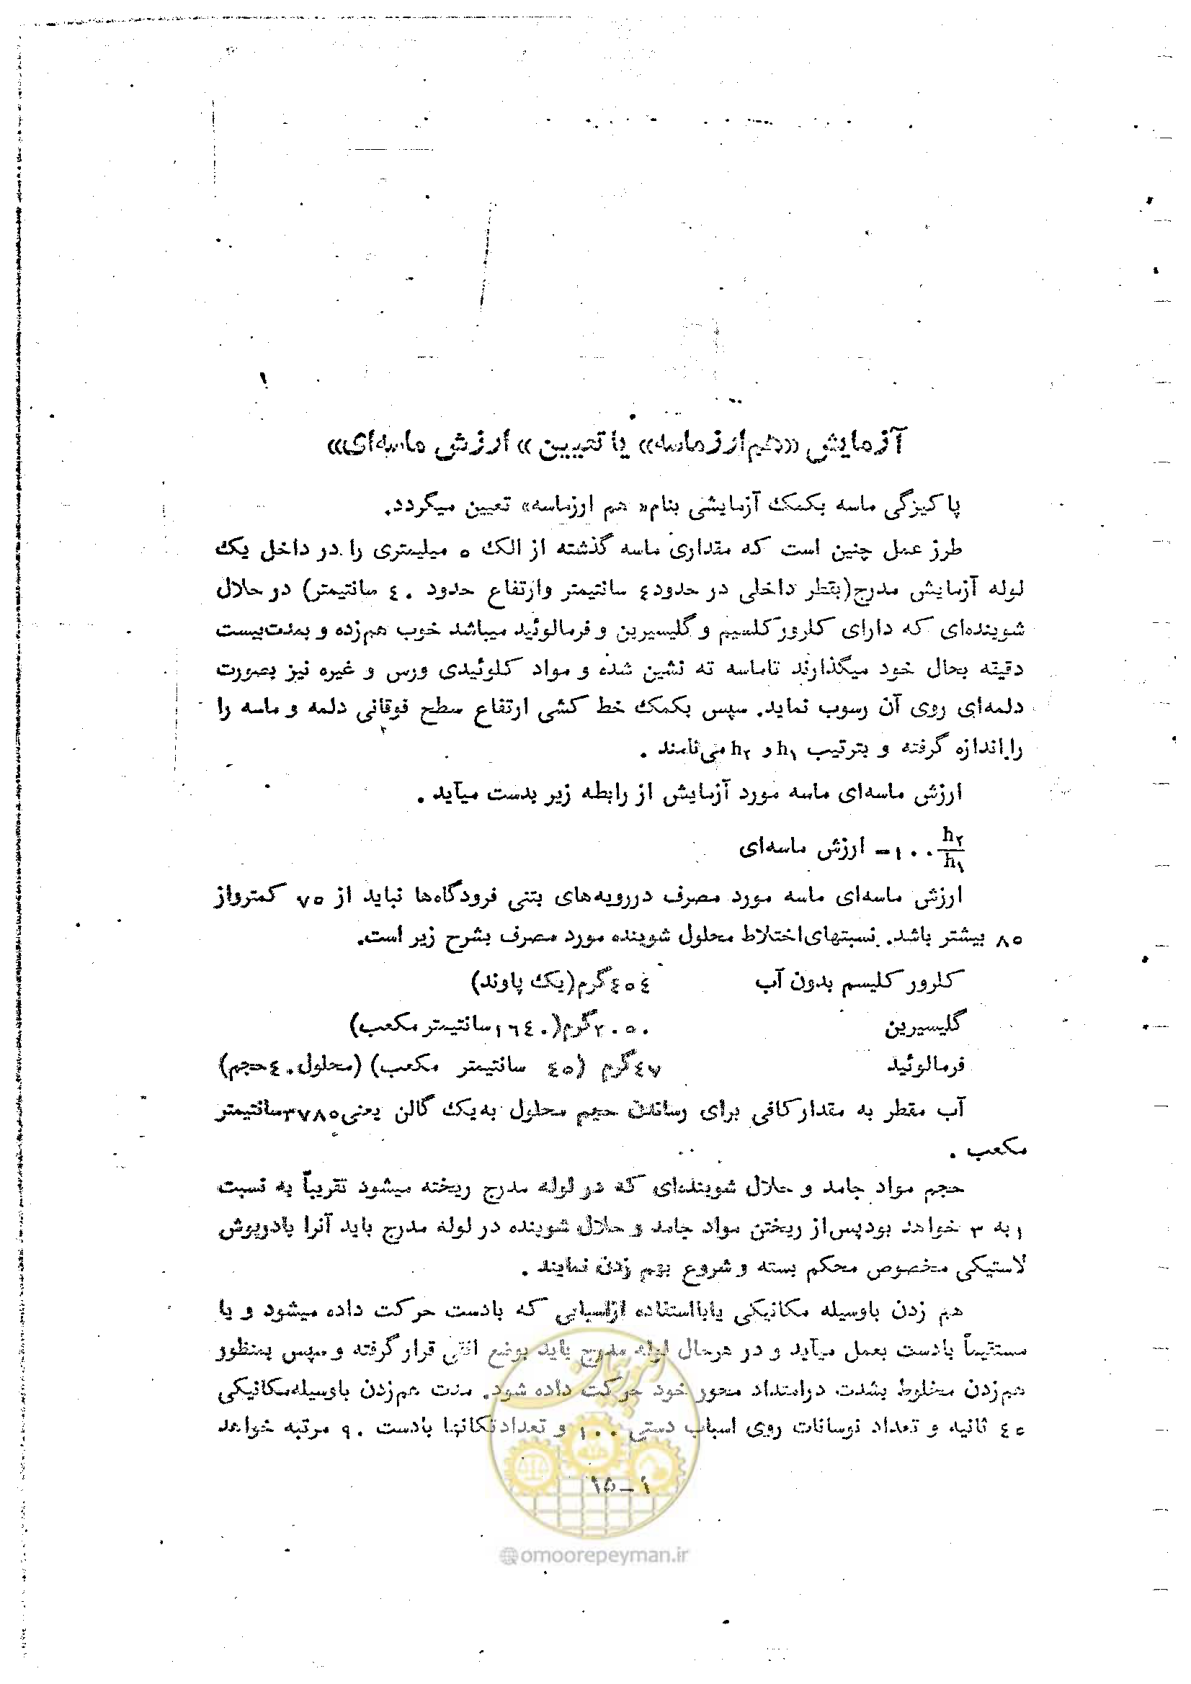 آزمایش «هم‌ارز ماسه» یا تعیین « ارزش ماسه‌ای»
پاکیزگی ماسه بکمک آزمایشی بنام« هم ارزماسه» تعیین میگردد.
طرز عمل چنین است که مقداری ماسه گذشته از الک ۵ میلیمتری را در داخل یک
لوله آزمایش مدرج(بقطر داخلی در حدود٤ سانتیمتر وارتفاع حدود ٤۰ سانتیمتر) در حلال
شوینده‌ای که دارای کلرور کلسیم و گلیسیرین و فرمالوئید میباشد خوب هم‌زده و بمدت‌بیست
دقیقه بحال خود میگذارند تاماسه ته نشین شده و مواد کلوئیدی ورس و غیره نیز بصورت
دلمه‌ای روی آن رسوب نماید. سپس بکمک خط کشی ارتفاع سطح فوقانی دلمه و ماسه را
را اندازه گرفته و بترتیب h۱ و h۲ می‌نامند .
ارزش ماسه‌ای ماسه مورد آزمایش از رابطه زیر بدست میآید .
ارزش ماسه‌ای =۱۰۰ h۲/h۱
ارزش ماسه‌ای ماسه مورد مصرف دررویه‌های بتنی فرودگاه‌ها نباید از ۷۵ کمترواز
۸۵ بیشتر باشد. نسبتهای‌اختلاط محلول شوینده مورد مصرف بشرح زیر است.
کلرور کلیسم بدون آب ٤۵٤گرم(یک پاوند)
گلیسیرین ۲۰۵۰گرم(۱٦٤۰سانتیتر مکعب)
فرمالوئید ٤۷گرم (٤۵ سانتیمتر مکعب) (محلول ٤۰حجم)
آب مقطر به مقدارکافی برای رساندن حجم محلول به‌یک گالن یعنی۳۷۸۵سانتیمتر
مکعب .
حجم مواد جامد و حلال شوینده‌ای که در لوله مدرج ریخته میشود تقریباً به نسبت
۱ به ۳ خواهد بودپس‌از ریختن مواد جامد و حلال شوینده در لوله مدرج باید آنرا بادرپوش
لاستیکی مخصوص محکم بسته و شروع بهم زدن نمایند .
هم زدن باوسیله مکانیکی یابااستفاده ازاسبابی که بادست حرکت داده میشود و یا
مستقیماً بادست بعمل میآید و در هرحال لوله مدرج باید بوضع افقی قرار گرفته و سپس بمنظور
هم‌زدن مخلوط بشدت درامتداد محور خود حرکت داده شود. مدت هم‌زدن باوسیله‌مکانیکی
٤۵ ثانیه و تعداد نوسانات روی اسباب دستی ۱۰۰ و تعدادتکانها بادست ۹۰ مرتبه خواهد
۱–۱۵
امور پیمان
@omoorepeyman.ir